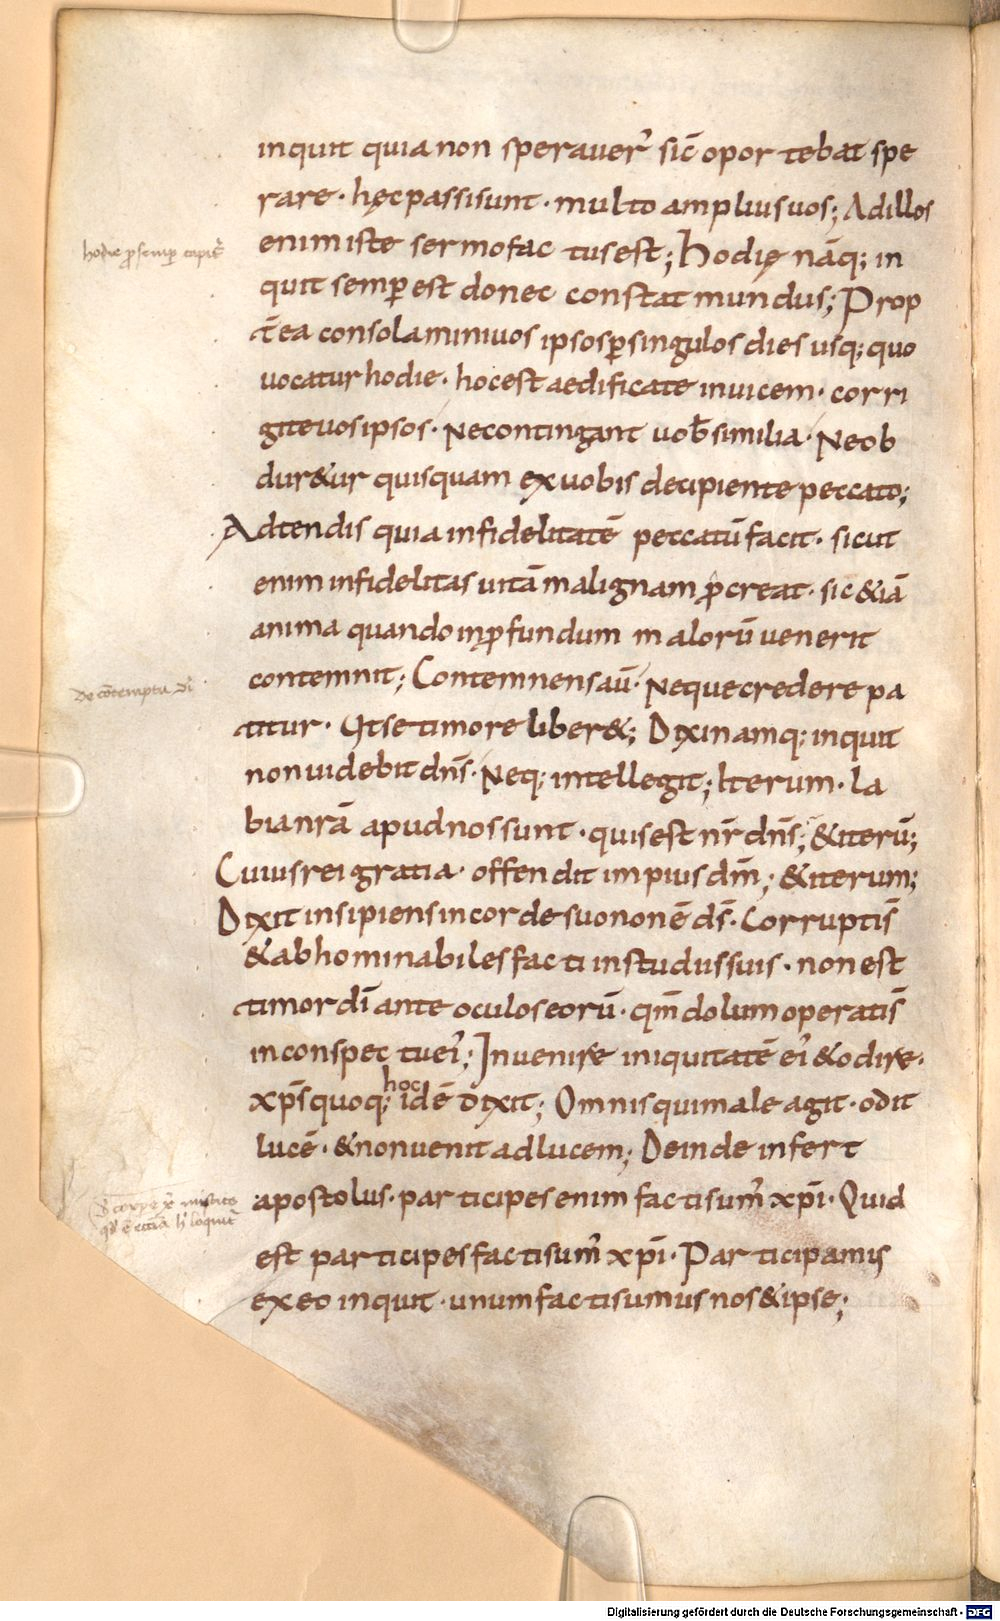 inquit quia non sperauer̄ sic̄ oportebat spe
rare · hęc passi sunt · multo amplius uos; Ad illos
enim iste sermo factus est; Hodię nāq; in
hodie ꝓ semꝑ
quit semꝑ est donec constat mundus; Prop
t̄ea consolamini uos ipsos ꝑ singulos dies usq; quo
uocatur hodie · hoc est aedificate inuicem · corri
gite uos ipsos · Ne contingant uob̄ similia · Ne ob
dur&ur quisquam ex uobis decipiente peccato;
Adtendis quia infidelitatē peccatū facit · sicut
enim infidelitas uitā malignam ꝓcreat · sic &iā
anima quando in ꝓfundum malorū uenerit
De cōtemptu dī
contemnit; Contemnens aū · Neque credere pa
titur · Ut se timore liber&; Dixi namq; inquit
non uidebit dn̄s · Neq; intellegit; Iterum · la
bia nr̄ā apud nos sunt · quis est nr̄ dn̄s; & iterū;
Cuius rei gratia · offendit impius dm̄; & iterum;
Dixit insipiens in corde suo non ē ds̄ · Corrupti s̄
& abhominabiles facti in studiis suis · non est
timor dī ante oculos eorū · qm̄ dolum operati s̄
in conspectu ei᾽; Inuenire iniquitatē ei᾽ & odire ·
xp̄s quoq; hoc idē dixit; Omnis qui male agit · odit
lucē · & non uenit ad lucem; Deinde infert
apostolus · participes enim facti sum᾽ xp̄i · Quid
est participes facti sum᾽ xp̄i · Participamis
ex eo inquit · unum facti sumus nos & ipse;
Digitalisierung gefördert durch die Deutsche Forschungsgemeinschaft - DFG